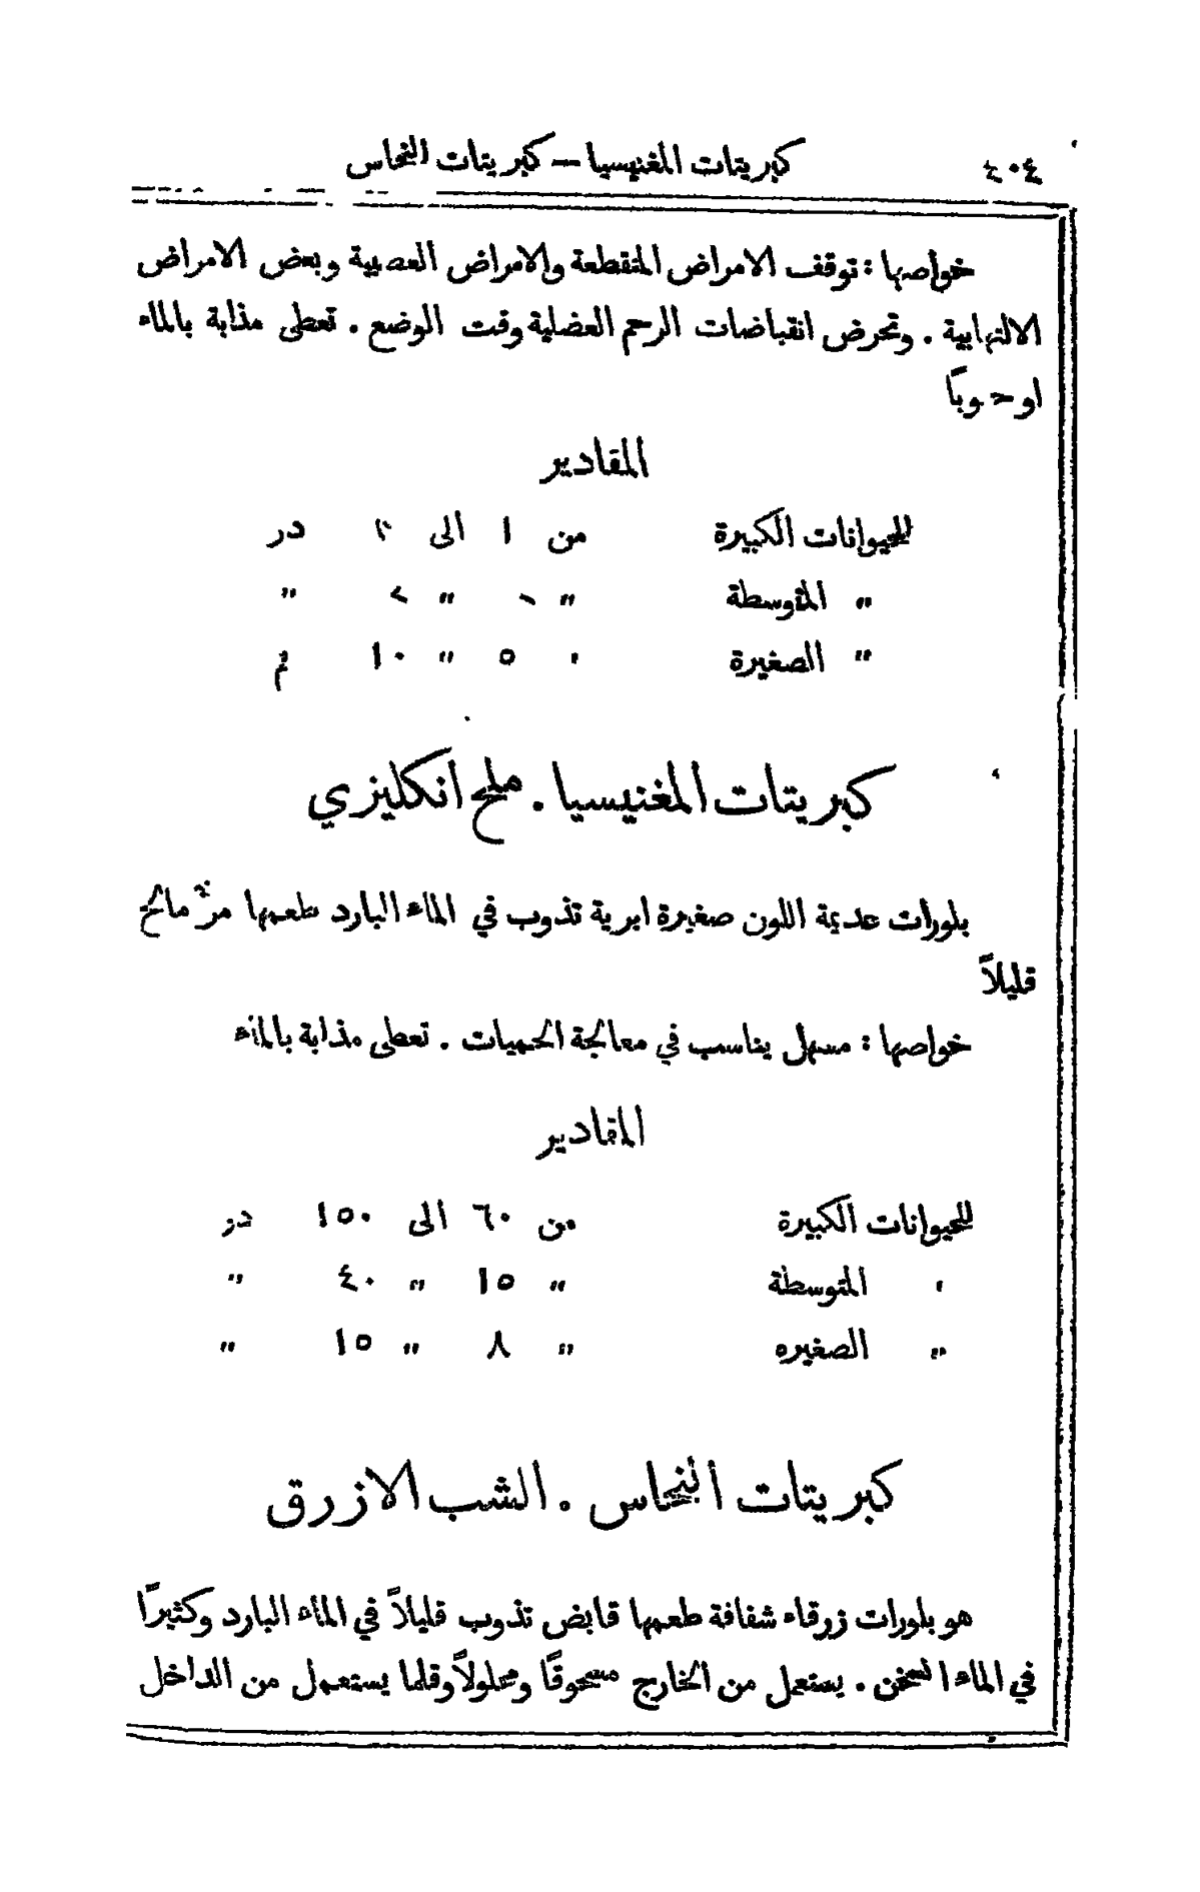 ٤٠٤ كبريتات المغنيسيا — كبريتات النحاس
خواصها : توقف الامراض المتقطعة والامراض العصبية وبعض الامراض
الالتهابية . وتحرض انقباضات الرحم العضلية وقت الوضع . تعطى مذابة بالماء
او حبوباً
المقادير
للحيوانات الكبيرة من ١ الى در
" المتوسطة " " "
" الصغيرة ٥ " ١٠
كبريتات المغنيسيا . ملح انكليزي
بلورات عديمة اللون صغيرة ابرية تذوب في الماء البارد طعمها مرّ مالح
قليلاً
خواصها : مسهل يناسب في معالجة الحميات . تعطى مذابة بالماء
المقادير
للحيوانات الكبيرة من ٦٠ الى ١٥٠ در
" المتوسطة " ١٥ " ٤٠ "
" الصغيره " ٨ " ١٥ "
كبريتات النحاس . الشب الازرق
هو بلورات زرقاء شفافة طعمها قابض تذوب قليلاً في الماء البارد وكثيراً
في الماء السخن . يستعمل من الخارج مسحوقاً ومحلولاً وقلما يستعمل من الداخل